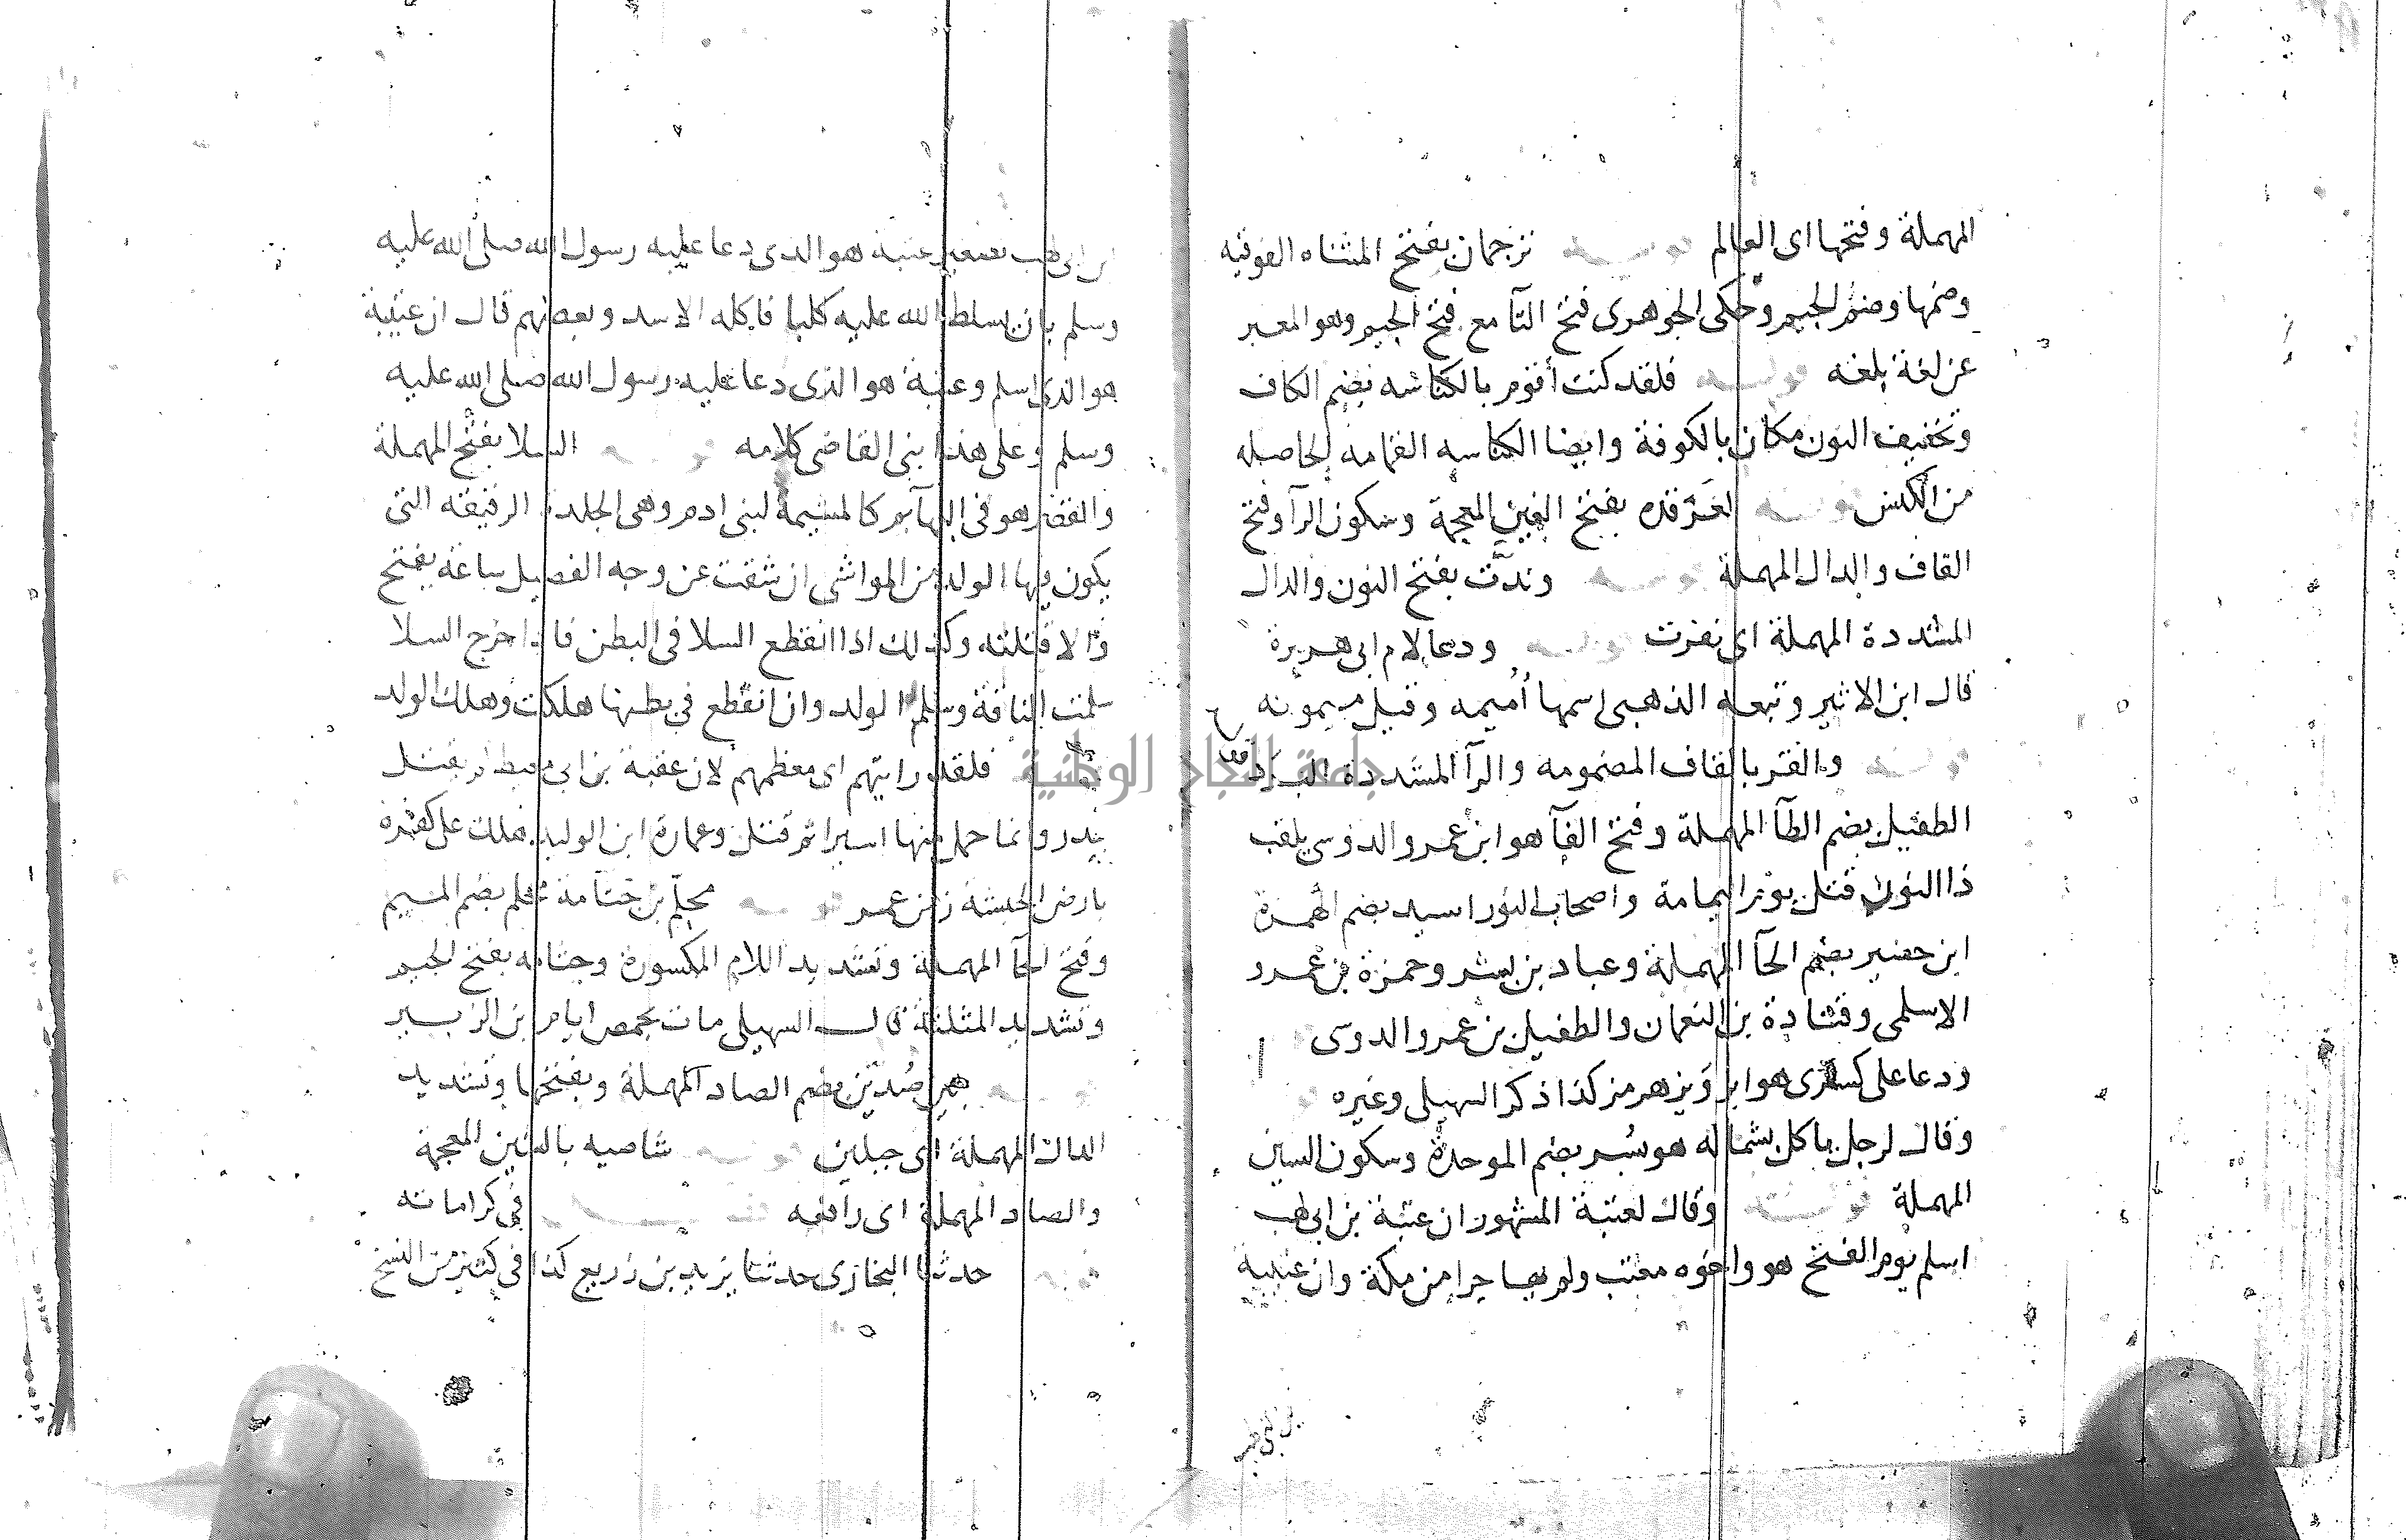 المهملة وفتحها اى العالم قوله ترجمان بفتح المثناه الفوقيه
وضمها وضم الجيم وحكى الجوهرى فتح التآ مع فتح الجيم وهو المعبر
عن لغة بلغه قوله فلقد كنت أقوم بالكناسه بضم الكاف
وتخفيف النون مكان بالكوفة وايضا الكناسه القمامه الحاصله
من الكنس قوله الغَرْقده بفتح الغين المعجمة وسكون الرآ وفتح
القاف والدال المهملة قوله وندّت بفتح النون والدال
المشددة المهملة اى نفرت قوله ودعا لام ابى هريرة
قال ابن الاثير وتبعه الذهبى اسمها أميمه وقيل ميمونه
قوله والقر بالقاف المضمومه والرآ المشددة البرد
الطفيل بضم الطآ المهملة وفتح الفآ هو ابن عمرو الدوسى يلقب
ذا النون قتل يوم اليمامة واصحاب النور اسيد بضم الهمزة
ابن حضير بضم الحآ المهملة وعباد بن بشر وحمزة بن عمرو
الاسلمى وقتادة بن النعمان والطفيل بن عمرو الدوسى
ودعا على كسرى هو ابرويز هرمز كذا ذكر السهيلى وغيره
وقال لرجل ياكل بشماله هو بُسر بضم الموحدة وسكون السين
المهملة قوله وقال لعتبة المشهور ان عتبة بن ابى لهب
اسلم يوم الفتح هو واخوه معتب ولم يهاجرا من مكة وان عتيبة
بن ابى لهب تصغير عتبة هو الذى دعا عليه رسول الله صلى الله عليه
وسلم بان يسلط الله عليه كلبا فاكله الاسد وبعضهم قال ان عتيبة
هو الذى اسلم وعتبة هو الذى دعا عليه رسول الله صلى الله عليه
وسلم وعلى هذا بنى القاضى كلامه قوله السلا بفتح المهملة
والقصر هو فى البهآيم كالمشيمة لبنى ادم وهى الجلدة الرقيقه التى
يكون فيها الولد من المواشى ان شقت عن وجه الفصيل ساعة يفتح
والا قتلته وكذلك اذا انقطع السلا فى البطن فاذا خرج السلا
سلمت الناقة وسلم الولد وان انقطع فى بطنها هلكت وهلك الولد
فلقد رايتهم اى معظمهم لان عقبة بن ابى معيط لم يقتل
ببدر وانما حمل منها اسيرا ثم قتل وعمارة ابن الوليد هلك على كفره
بارض الحبشة زمن عمر قوله محلّم بن جثّامة محلم بضم الميم
وفتح الحآ المهملة وتشديد اللام المكسورة وجثامه بفتح الجيم
وتشديد المثلثة قال السهيلى مات بحمص ايام بن الزبير
قوله بين صُدّين بضم الصاد المهملة وبفتحها وتشديد
الدال المهملة اى جبلين قوله شاصيه بالشين المعجمة
والصاد المهملة اى رافعه فصل فى كراماته
قوله حدثنا البخارى حدثنا يزيد بن زريع كذا فى كثير من النسخ
جامعة النجاح الوطنية